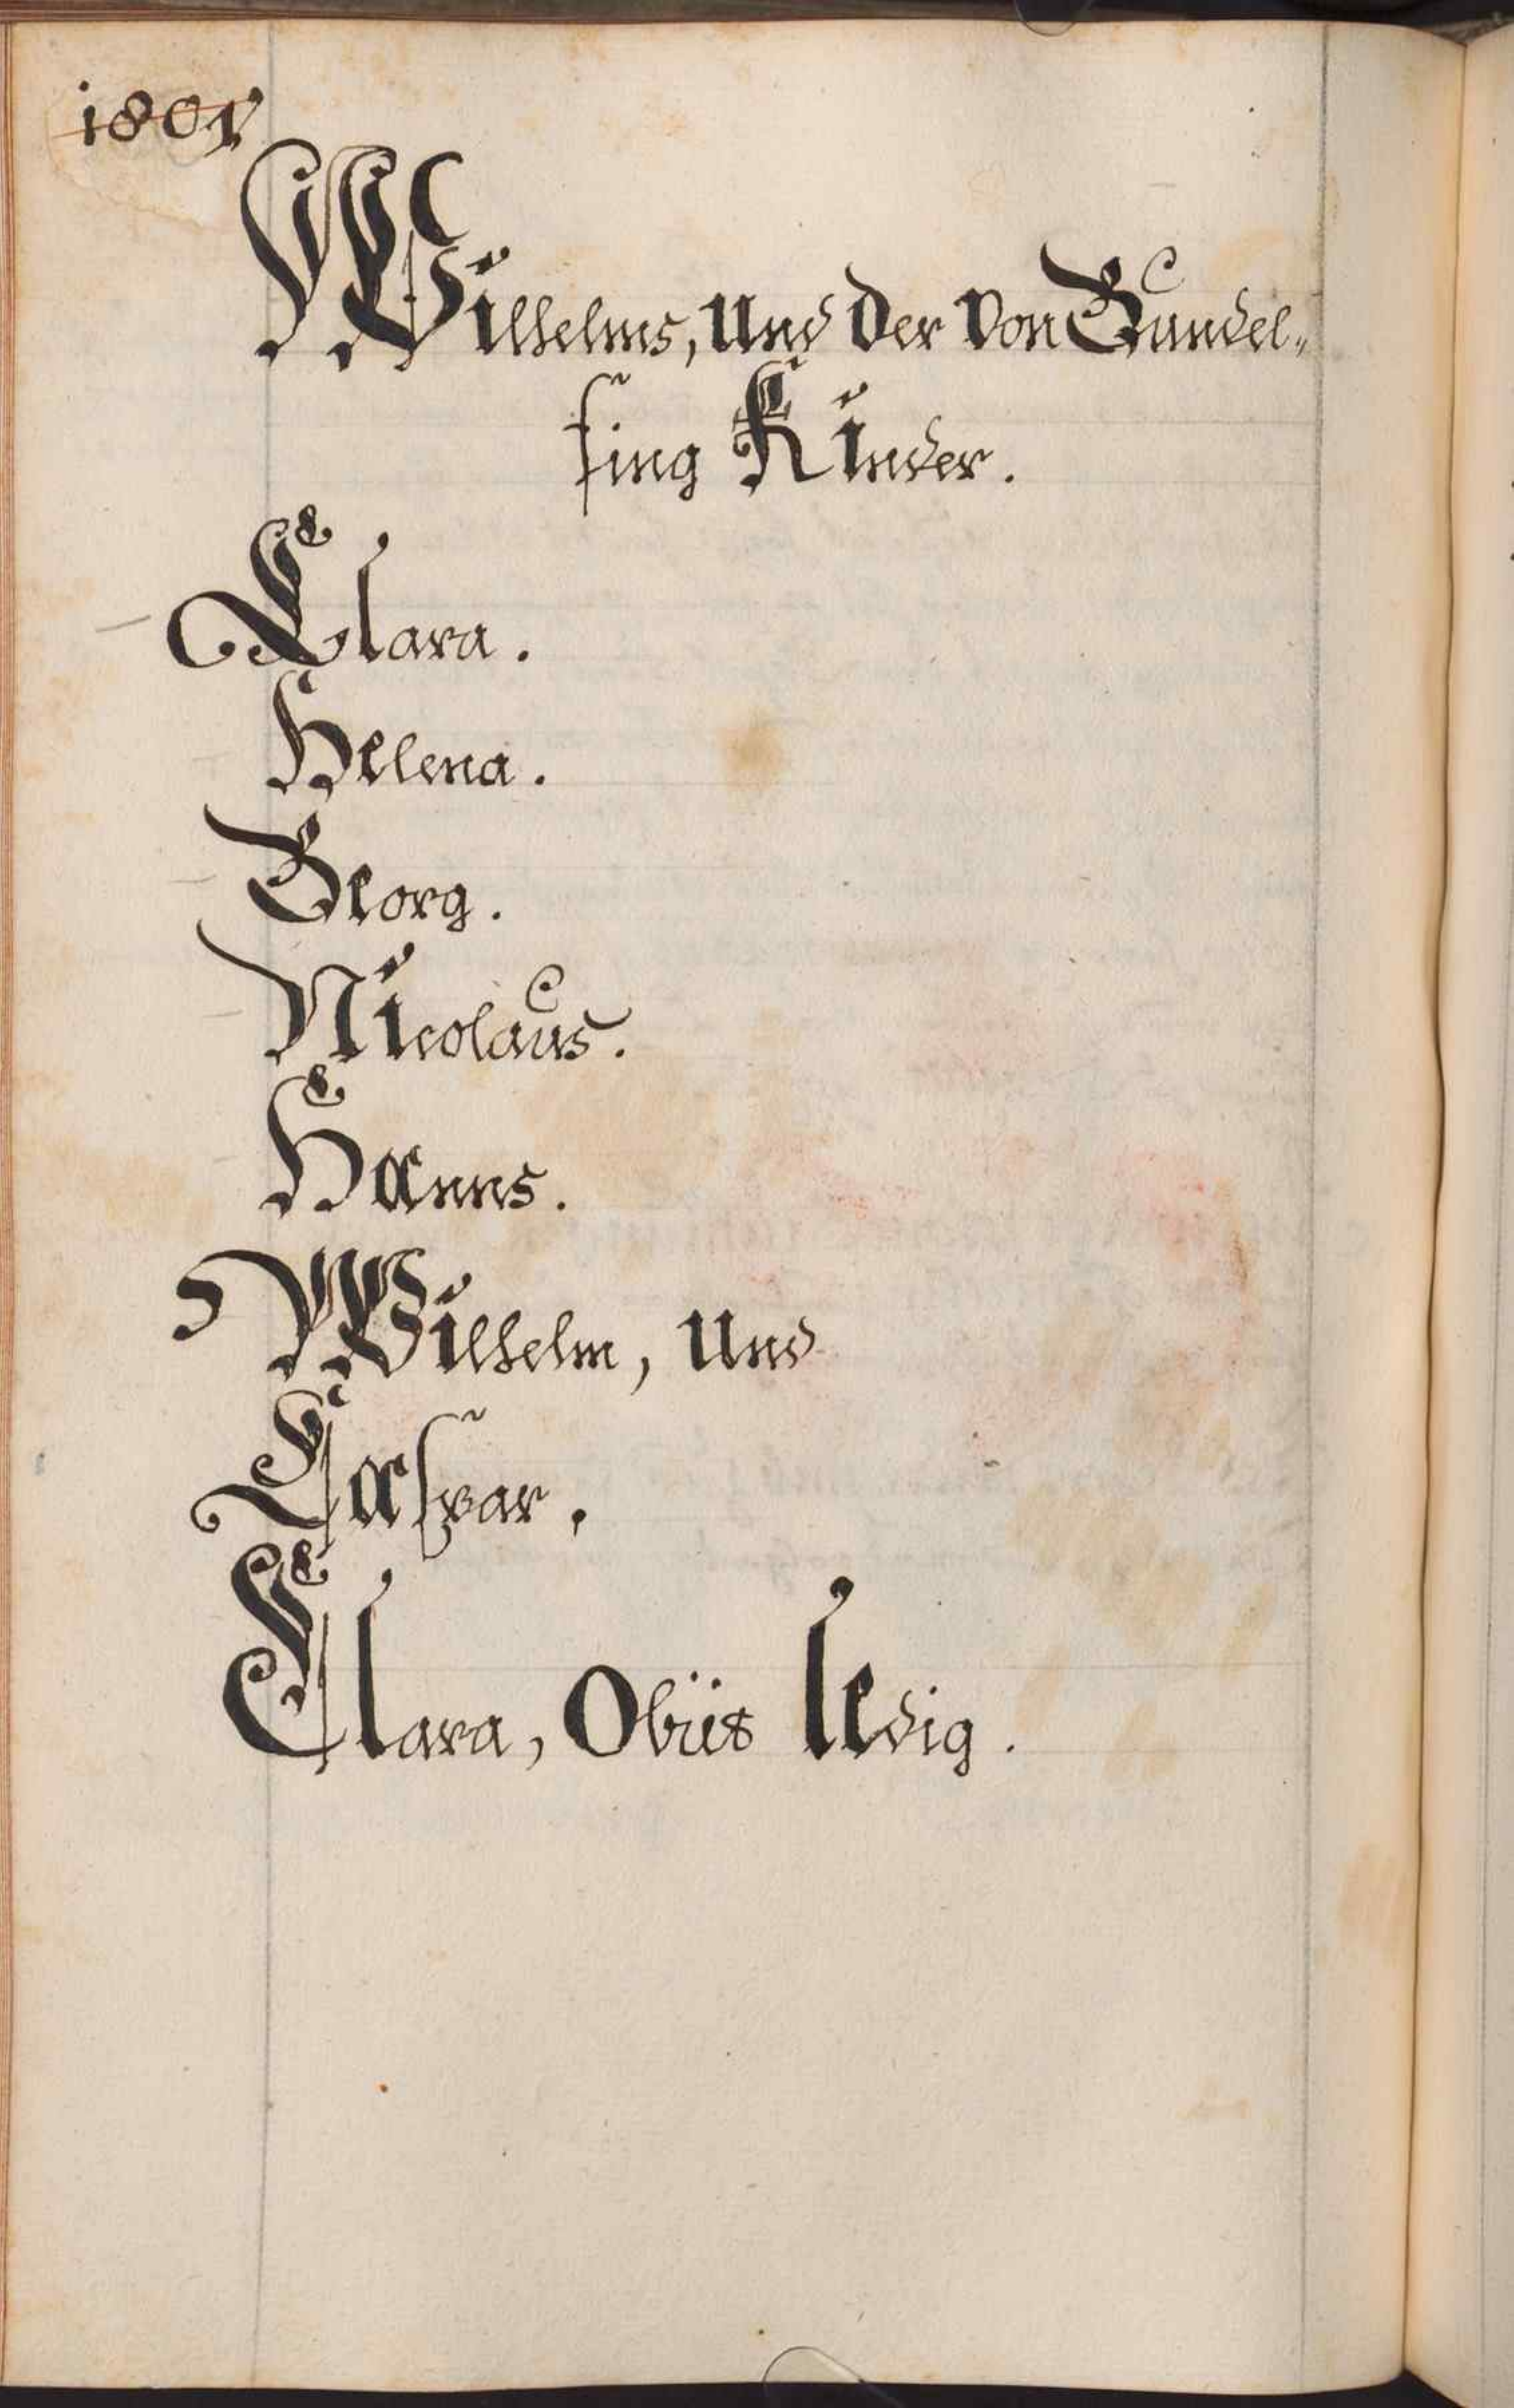 1801
Wilhelms, Und Der Von Gundel⸗
fing Kinder.
Clara.
Helena.
Georg.
Nicolaus.
Hanns.
Wilhelm, Und
Caspar.
Clara, Obiit ledig.